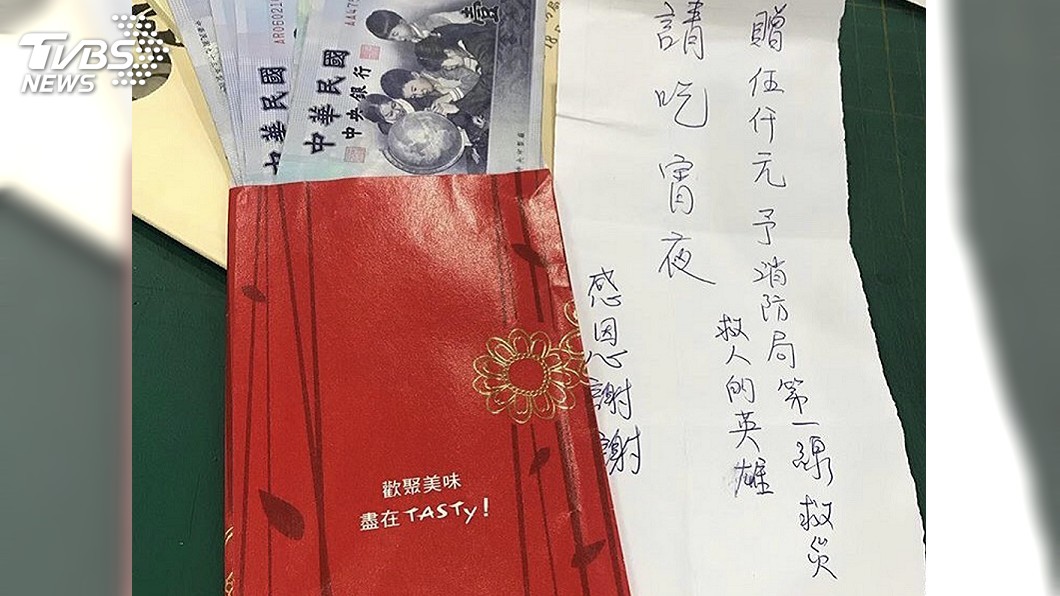 TVBS
NEWS
AR06021
中華民國
AA475
中華民國
中央銀行
贈伍仟元予消防局第一線救災
救人的英雄
請吃宵夜
感恩謝謝
歡聚美味
盡在TASTy!